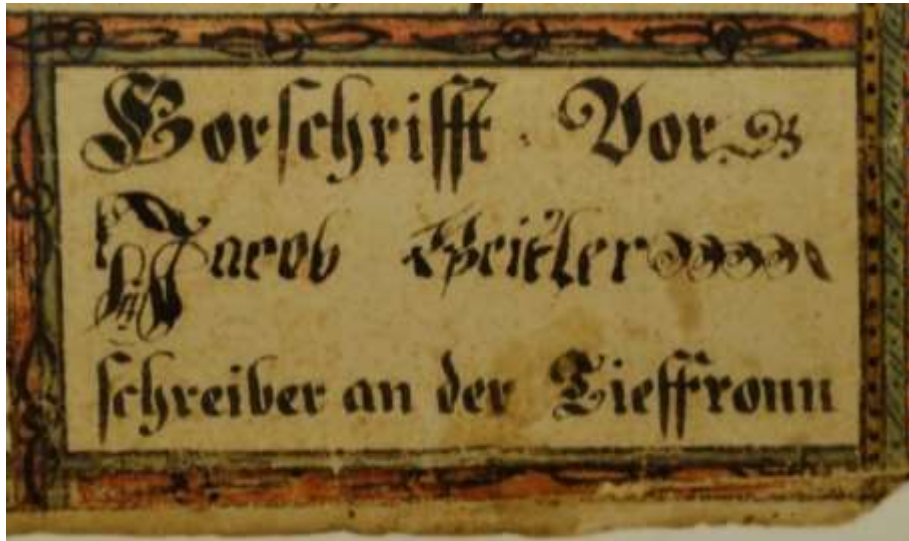 Vorſchrifft. Vor
Jacob Beitler
ſchreiber an der Tieffronn